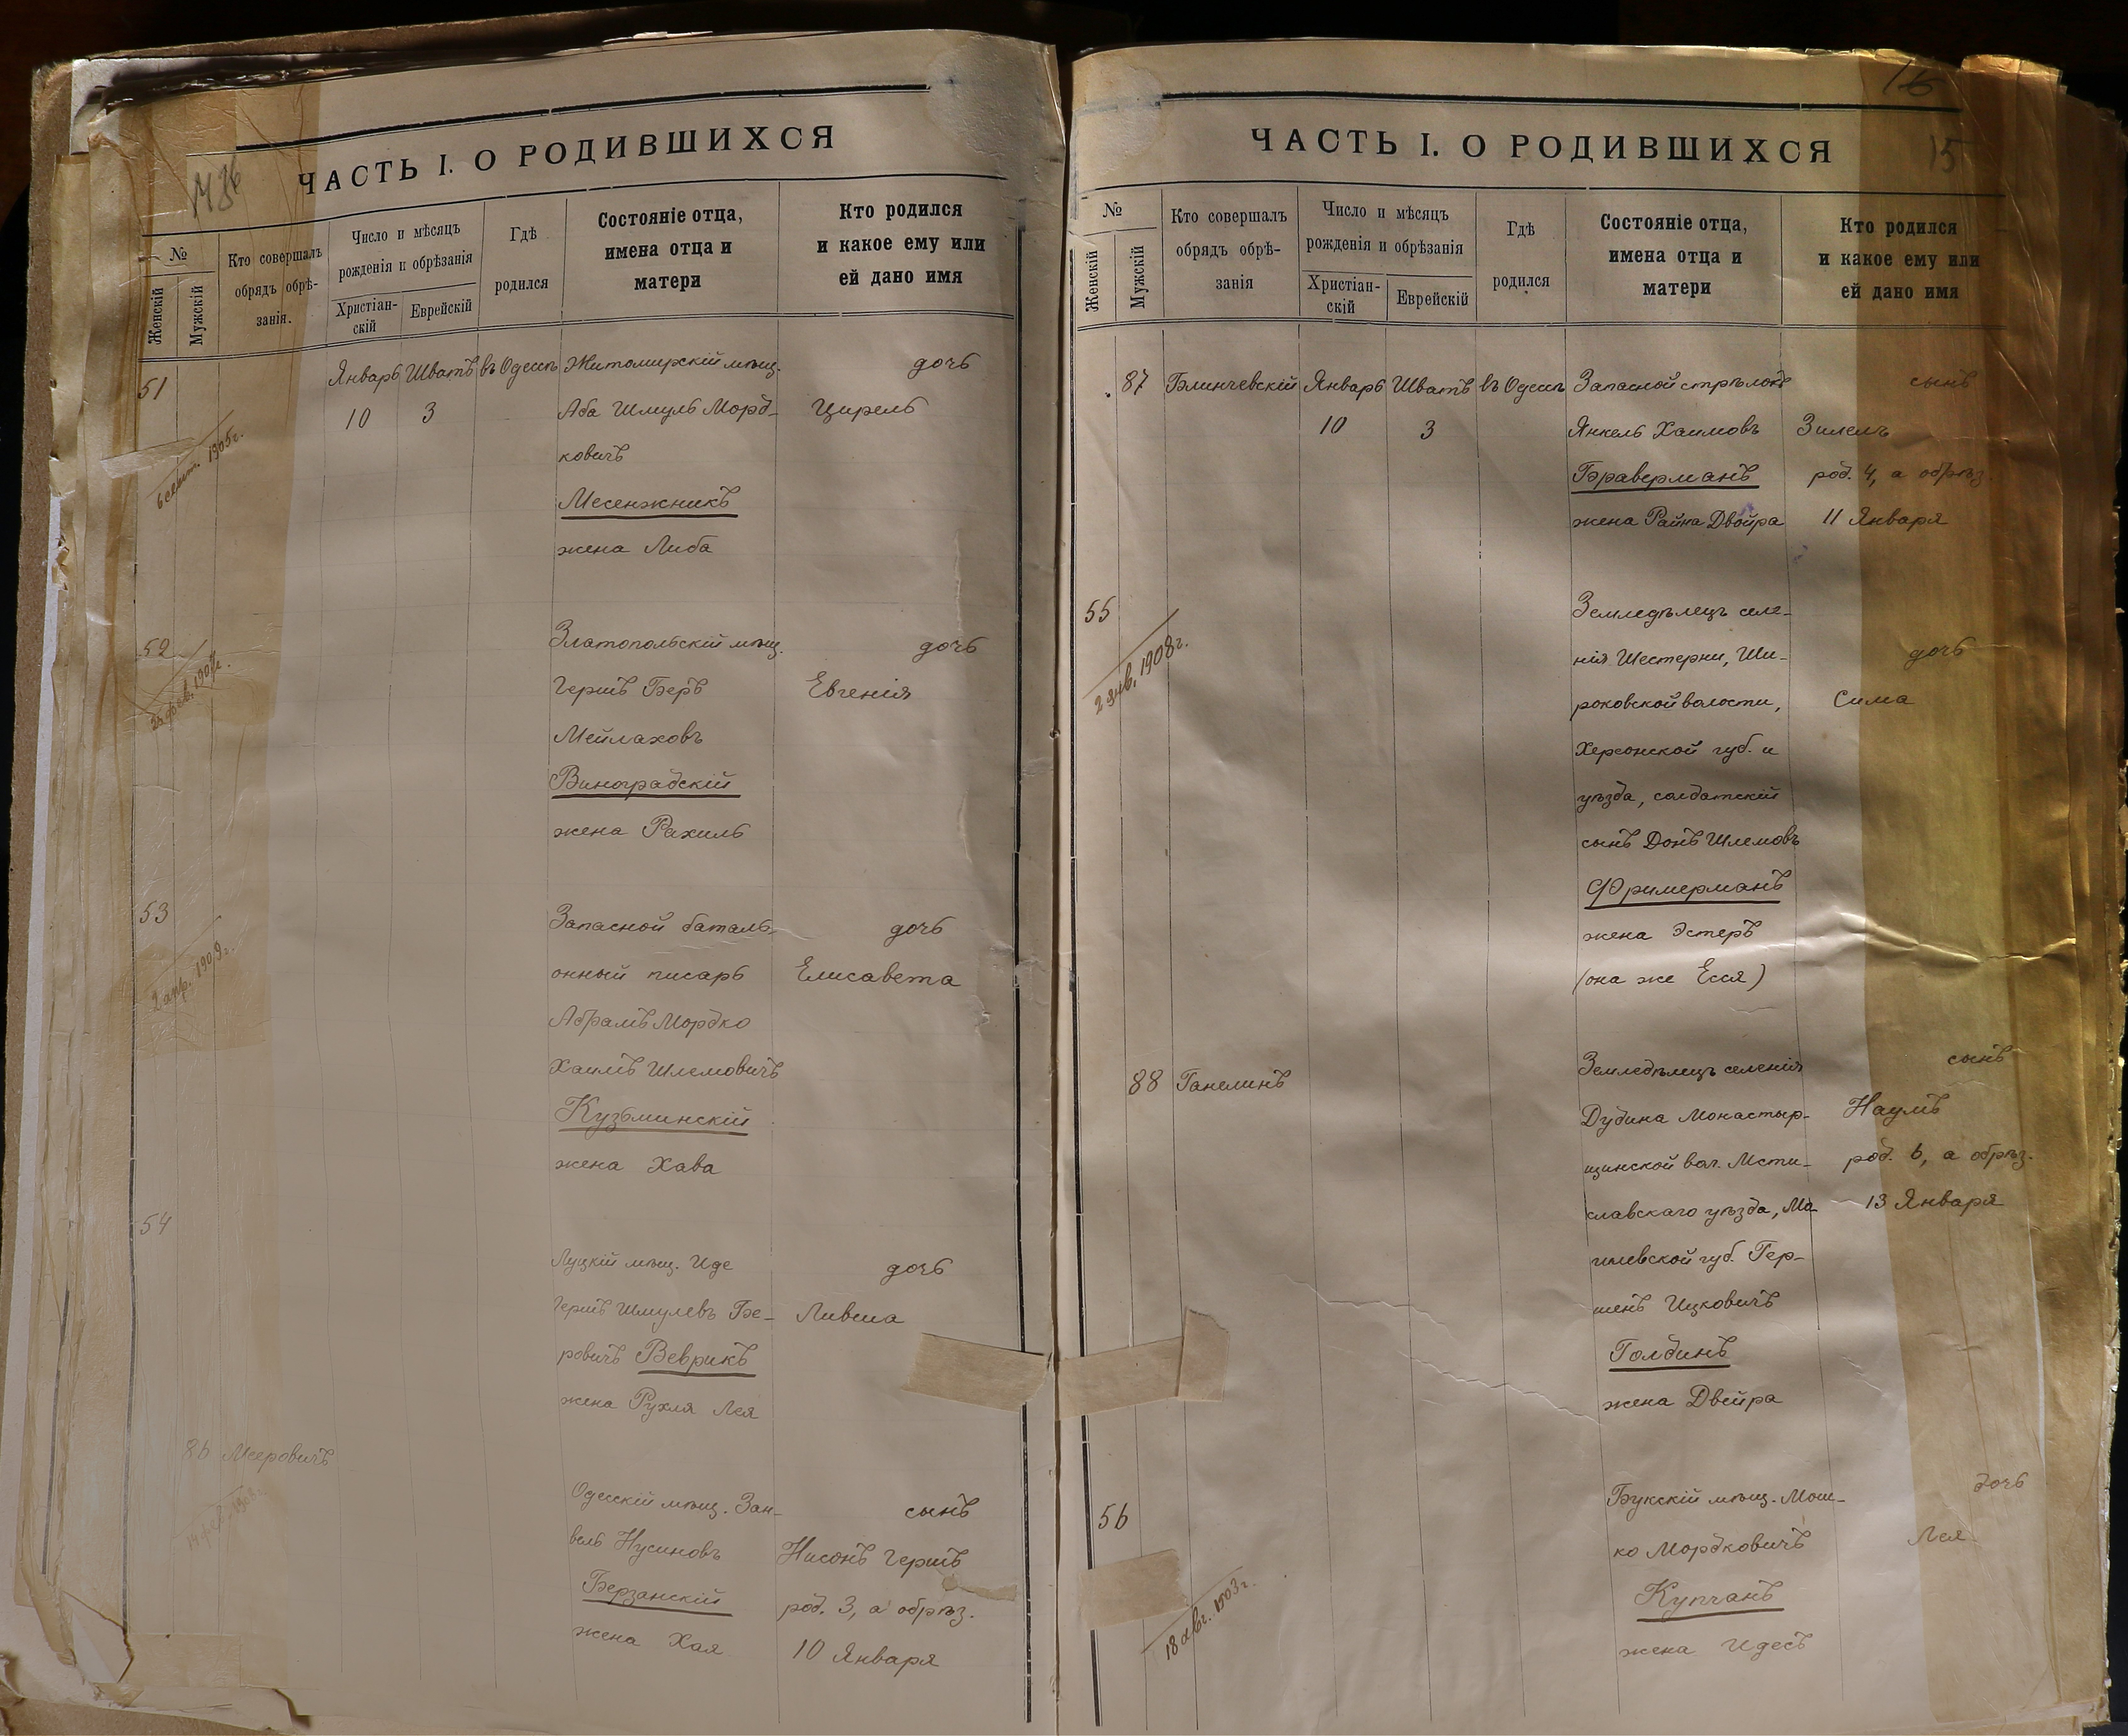 ЧАСТЬ I. О РОДИВШИХСЯ
№
Женскій
Мужскій
Кто совершалъ
обрядъ обрѣ-
занія.
Число и мѣсяцъ
рожденія и обрѣзанія
Христіан-
скій
Еврейскій
Гдѣ
родился
Состояніе отца,
имена отца и
матери
Кто родился
и какое ему или
ей дано имя
51
Январь Шватъ въ Одессѣ Житомирскій мѣщ. дочь
10 3 Аба Шмуль Морд- Цирель
ковичъ
1905г.
Месенжникъ
жена Либа
52 Златопольскій мѣщ. дочь
Гершъ Беръ Евгенія
Мейлаховъ
Виноградскій
жена Рахиль
53 Запасной баталь- дочь
онный писарь Елисавета
2 апр. 1909г.
Абрамъ Мордко
Хаимъ Шлемовичъ
Кузьминскій
жена Хава
54
Луцкій мѣщ. Иде дочь
Гершъ Шмулевъ Бе- Ливша
ровичъ Веврикъ
жена Рухля Лея
86 Мееровичъ
Одесскій мѣщ. Зан- сынъ
вель Нусиновъ Нисонъ Гершъ
Берзанскій род. 3, а обрѣз.
жена Хая 10 Января
15
ЧАСТЬ I. О РОДИВШИХСЯ
№
Женскій
Мужскій
Кто совершалъ
обрядъ обрѣ-
занія
Число и мѣсяцъ
рожденія и обрѣзанія
Христіан-
скій
Еврейскій
Гдѣ
родился
Состояніе отца,
имена отца и
матери
Кто родился
и какое ему или
ей дано имя
87 Блинчевскій Январь Шватъ въ Одессѣ Запасной стрѣлокъ сынъ
10 3 Янкель Хаимовъ Зилелъ
Браверманъ род. 4, а обрѣз.
жена Райна Двойра 11 Января
55 Земледѣлецъ селе-
нія Шестерни, Ши- дочь
2 янв. 1908г.
роковской волости, Сима
Херсонской губ. и
уѣзда, солдатскій
сынъ Донъ Шлемовъ
Фримерманъ
жена Эстеръ
(она же Еся)
88 Ганелинъ Земледѣлецъ селенія сынъ
Дубина Монастыр- Наумъ
щинской вол. Мсти- род. 6, а обрѣз.
славскаго уѣзда, Мо 13 Января
гилевской губ. Гер-
шенъ Ицковичъ
Голдинъ
жена Двейра
56 Букскій мѣщ. Мош- дочь
ко Мордковичъ Лея
Купчанъ
18 авг. 1903г.
жена Идесъ